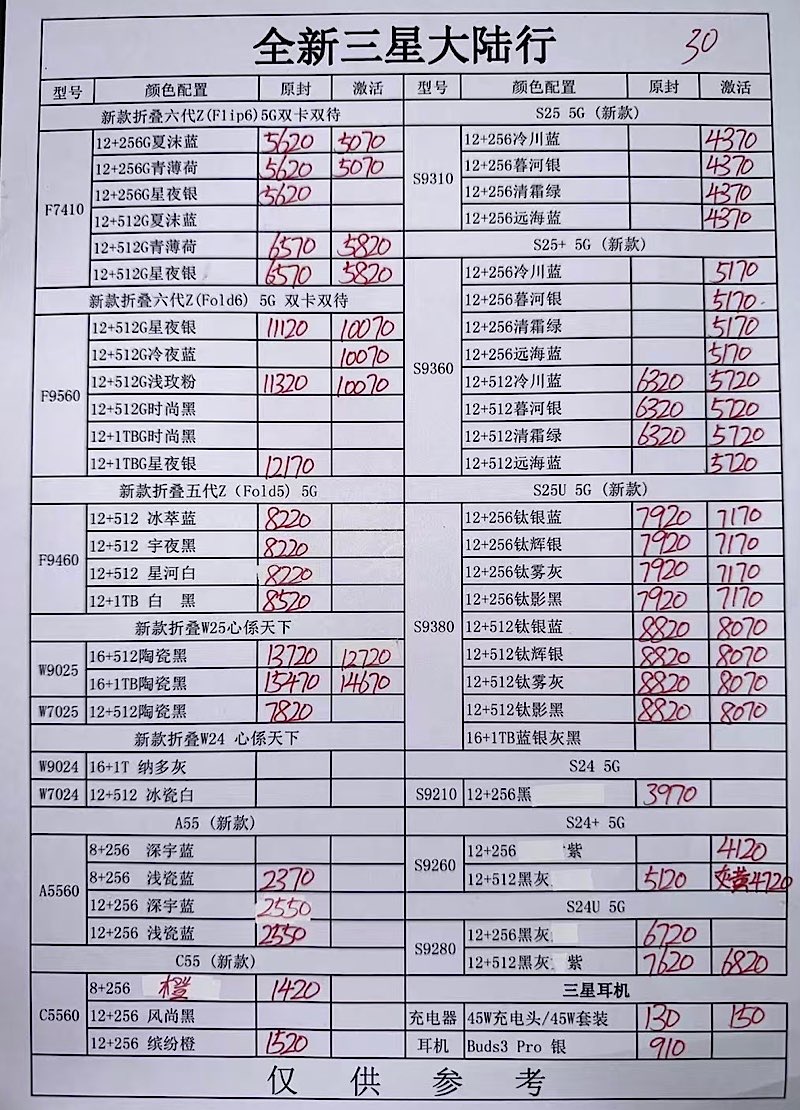 全新三星大陆行 30
型号 颜色配置 原封 激活
新款折叠六代Z(Flip6)5G双卡双待
F7410
12+256G夏沫蓝 5620 5070
12+256G青薄荷 5620 5070
12+256G星夜银 5620
12+512G夏沫蓝
12+512G青薄荷 6570 5820
12+512G星夜银 6570 5820
新款折叠六代Z(Fold6) 5G 双卡双待
F9560
12+512G星夜银 11120 10070
12+512G冷夜蓝 10070
12+512G浅玫粉 11320 10070
12+512G时尚黑
12+1TBG时尚黑
12+1TBG星夜银 12170
新款折叠五代Z (Fold5) 5G
F9460
12+512 冰萃蓝 8220
12+512 宇夜黑 8220
12+512 星河白 8220
12+1TB 白 黑 8520
新款折叠W25心係天下
W9025
16+512陶瓷黑 13720 12720
16+1TB陶瓷黑 15470 14670
W7025 12+512陶瓷黑 7820
新款折叠W24 心係天下
W9024 16+1T 纳多灰
W7024 12+512 冰瓷白
A55 (新款)
A5560
8+256 深宇蓝
8+256 浅瓷蓝 2370
12+256 深宇蓝 2550
12+256 浅瓷蓝 2550
C55 (新款)
C5560
8+256 橙 1420
12+256 风尚黑
12+256 缤纷橙 1520
型号 颜色配置 原封 激活
S25 5G (新款)
S9310
12+256冷川蓝 4370
12+256暮河银 4370
12+256清霜绿 4370
12+256远海蓝 4370
S25+ 5G (新款)
S9360
12+256冷川蓝 5170
12+256暮河银 5170
12+256清霜绿 5170
12+256远海蓝 5170
12+512冷川蓝 6320 5720
12+512暮河银 6320 5720
12+512清霜绿 6320 5720
12+512远海蓝 5720
S25U 5G (新款)
S9380
12+256钛银蓝 7920 7170
12+256钛辉银 7920 7170
12+256钛雾灰 7920 7170
12+256钛影黑 7920 7170
12+512钛银蓝 8820 8070
12+512钛辉银 8820 8070
12+512钛雾灰 8820 8070
12+512钛影黑 8820 8070
16+1TB蓝银灰黑
S24 5G
S9210 12+256黑 3970
S24+ 5G
S9260
12+256 紫 4120
12+512黑灰 5120 黄4720
S24U 5G
S9280
12+256黑灰 6720
12+512黑灰 紫 7620 6820
三星耳机
充电器 45W充电头/45W套装 130 150
耳机 Buds3 Pro 银 910
仅供参考